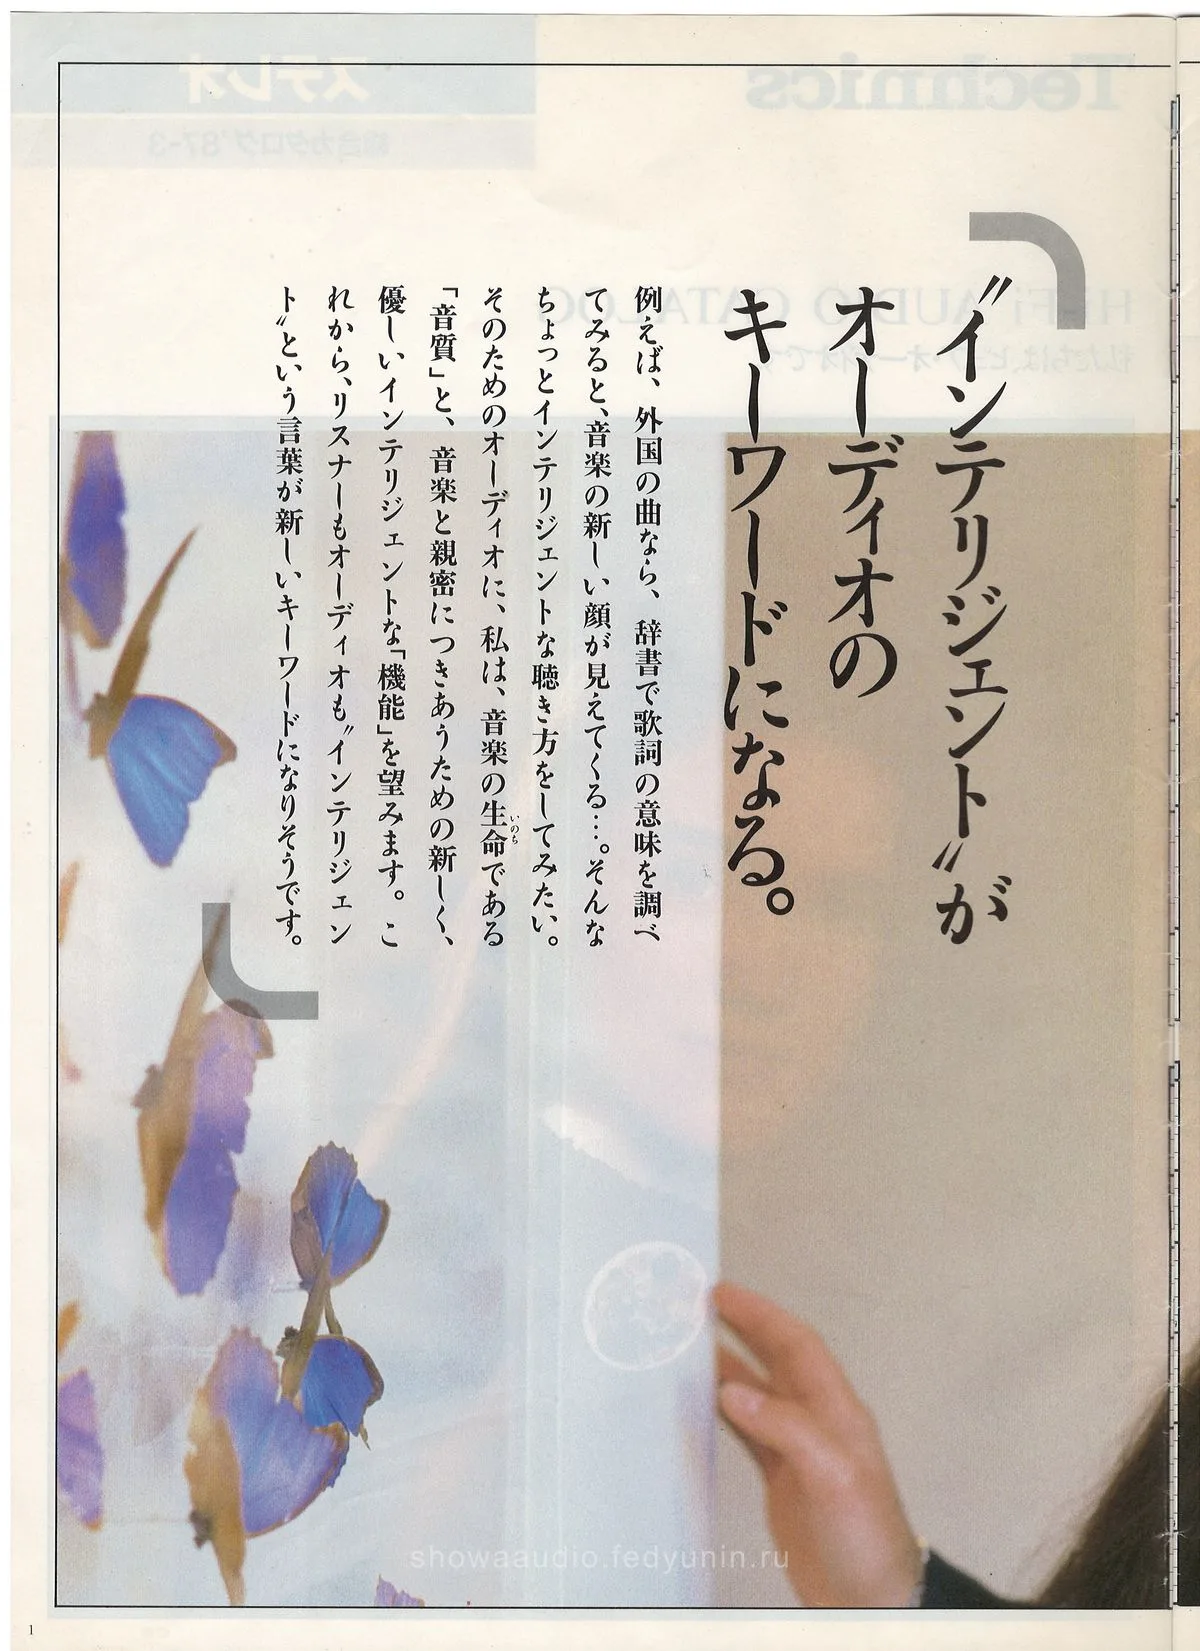 〝インテリジェント〟が
オーディオの
キーワードになる。
例えば、外国の曲なら、辞書で歌詞の意味を調べ
てみると、音楽の新しい顔が見えてくる…。そんな
ちょっとインテリジェントな聴き方をしてみたい。
そのためのオーディオに、私は、音楽の生命である
いのち
「音質」と、音楽と親密につきあうための新しく、
優しいインテリジェントな「機能」を望みます。こ
れから、リスナーもオーディオも〝インテリジェン
ト〟という言葉が新しいキーワードになりそうです。
Technics
ステレオ
総合カタログ '87-3
Hi-Fi AUDIO CATALOG
showaaudio.fedyunin.ru
1